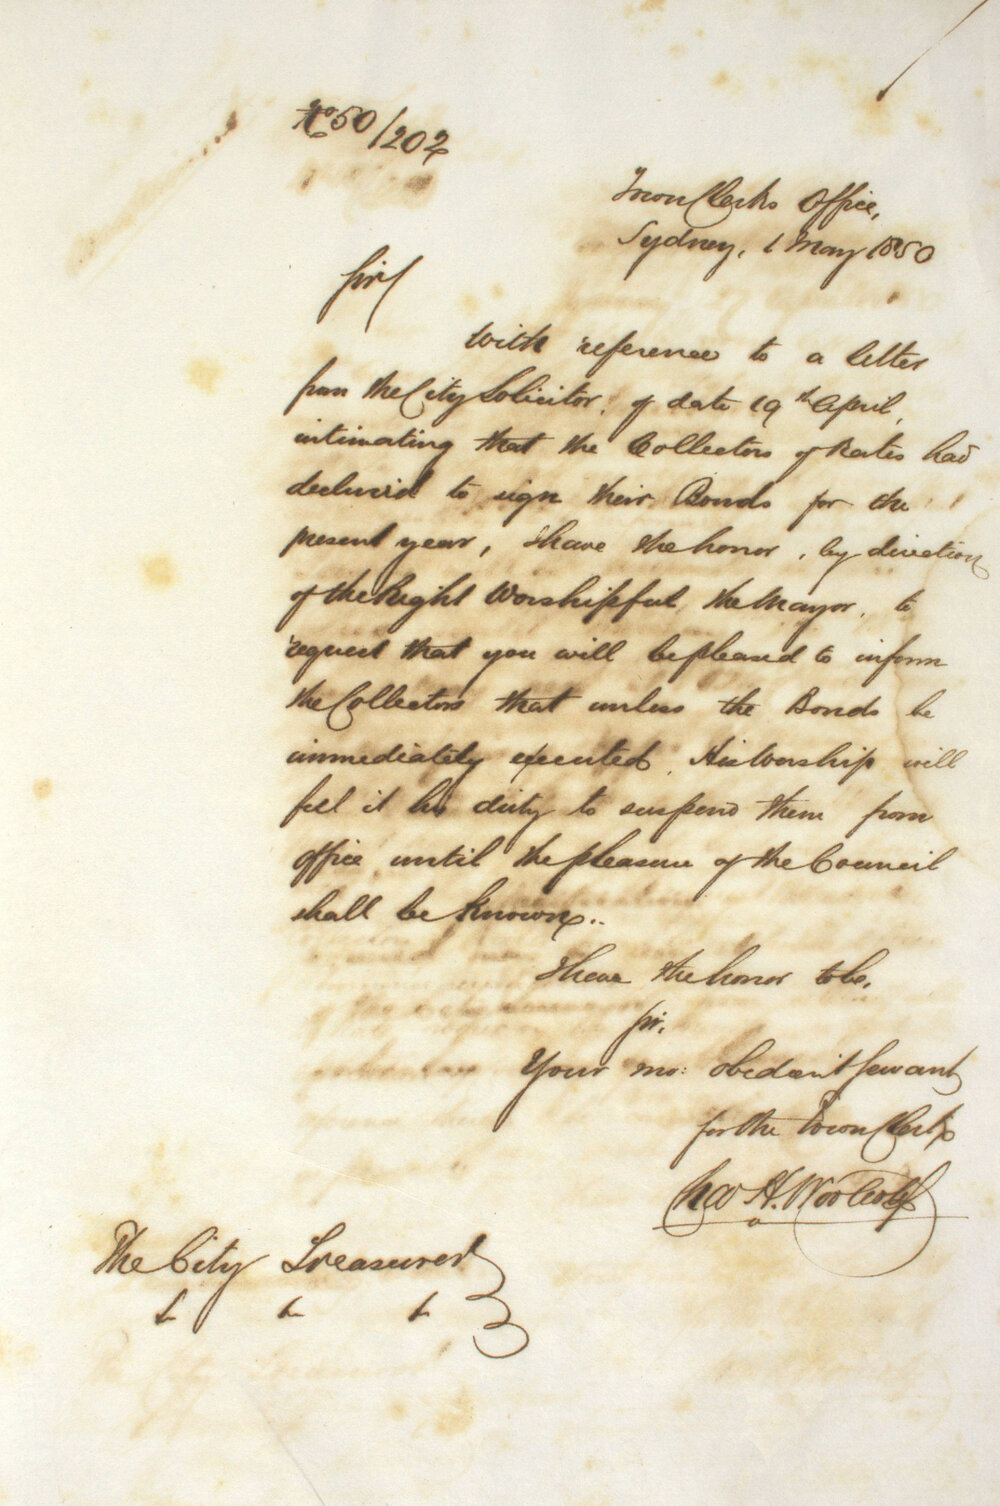 No 50/202
Town Clerks Office,
Sydney, 1 May 1850
Sir/
With reference to a letter
from the City Solicitor, of date 19th April,
intimating that the Collectors of Rates had
declined to sign their Bonds for the
present year, I have the honor, by direction
of the Right Worshipful the Mayor, to
request that you will be pleased to inform
the Collectors that unless the Bonds be
immediately executed, His Worship will
feel it his duty to suspend them from
office until the pleasure of the Council
shall be known..
I have the honor to be,
Sir,
Your mo: obedient Servant
for the Town Clerk
Chas H. Woolcott
The City Treasurer